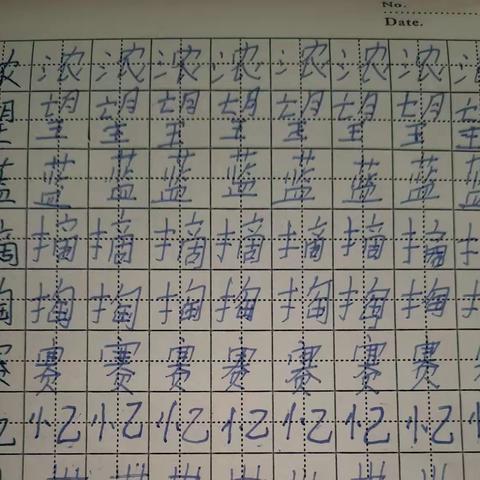 No.
Date.
浓浓浓浓浓浓浓
望望望望望望望望
蓝蓝蓝蓝蓝蓝蓝
摘摘摘摘摘摘摘
掏掏掏掏掏掏掏
赛赛赛赛赛赛赛
忆忆忆忆忆忆忆